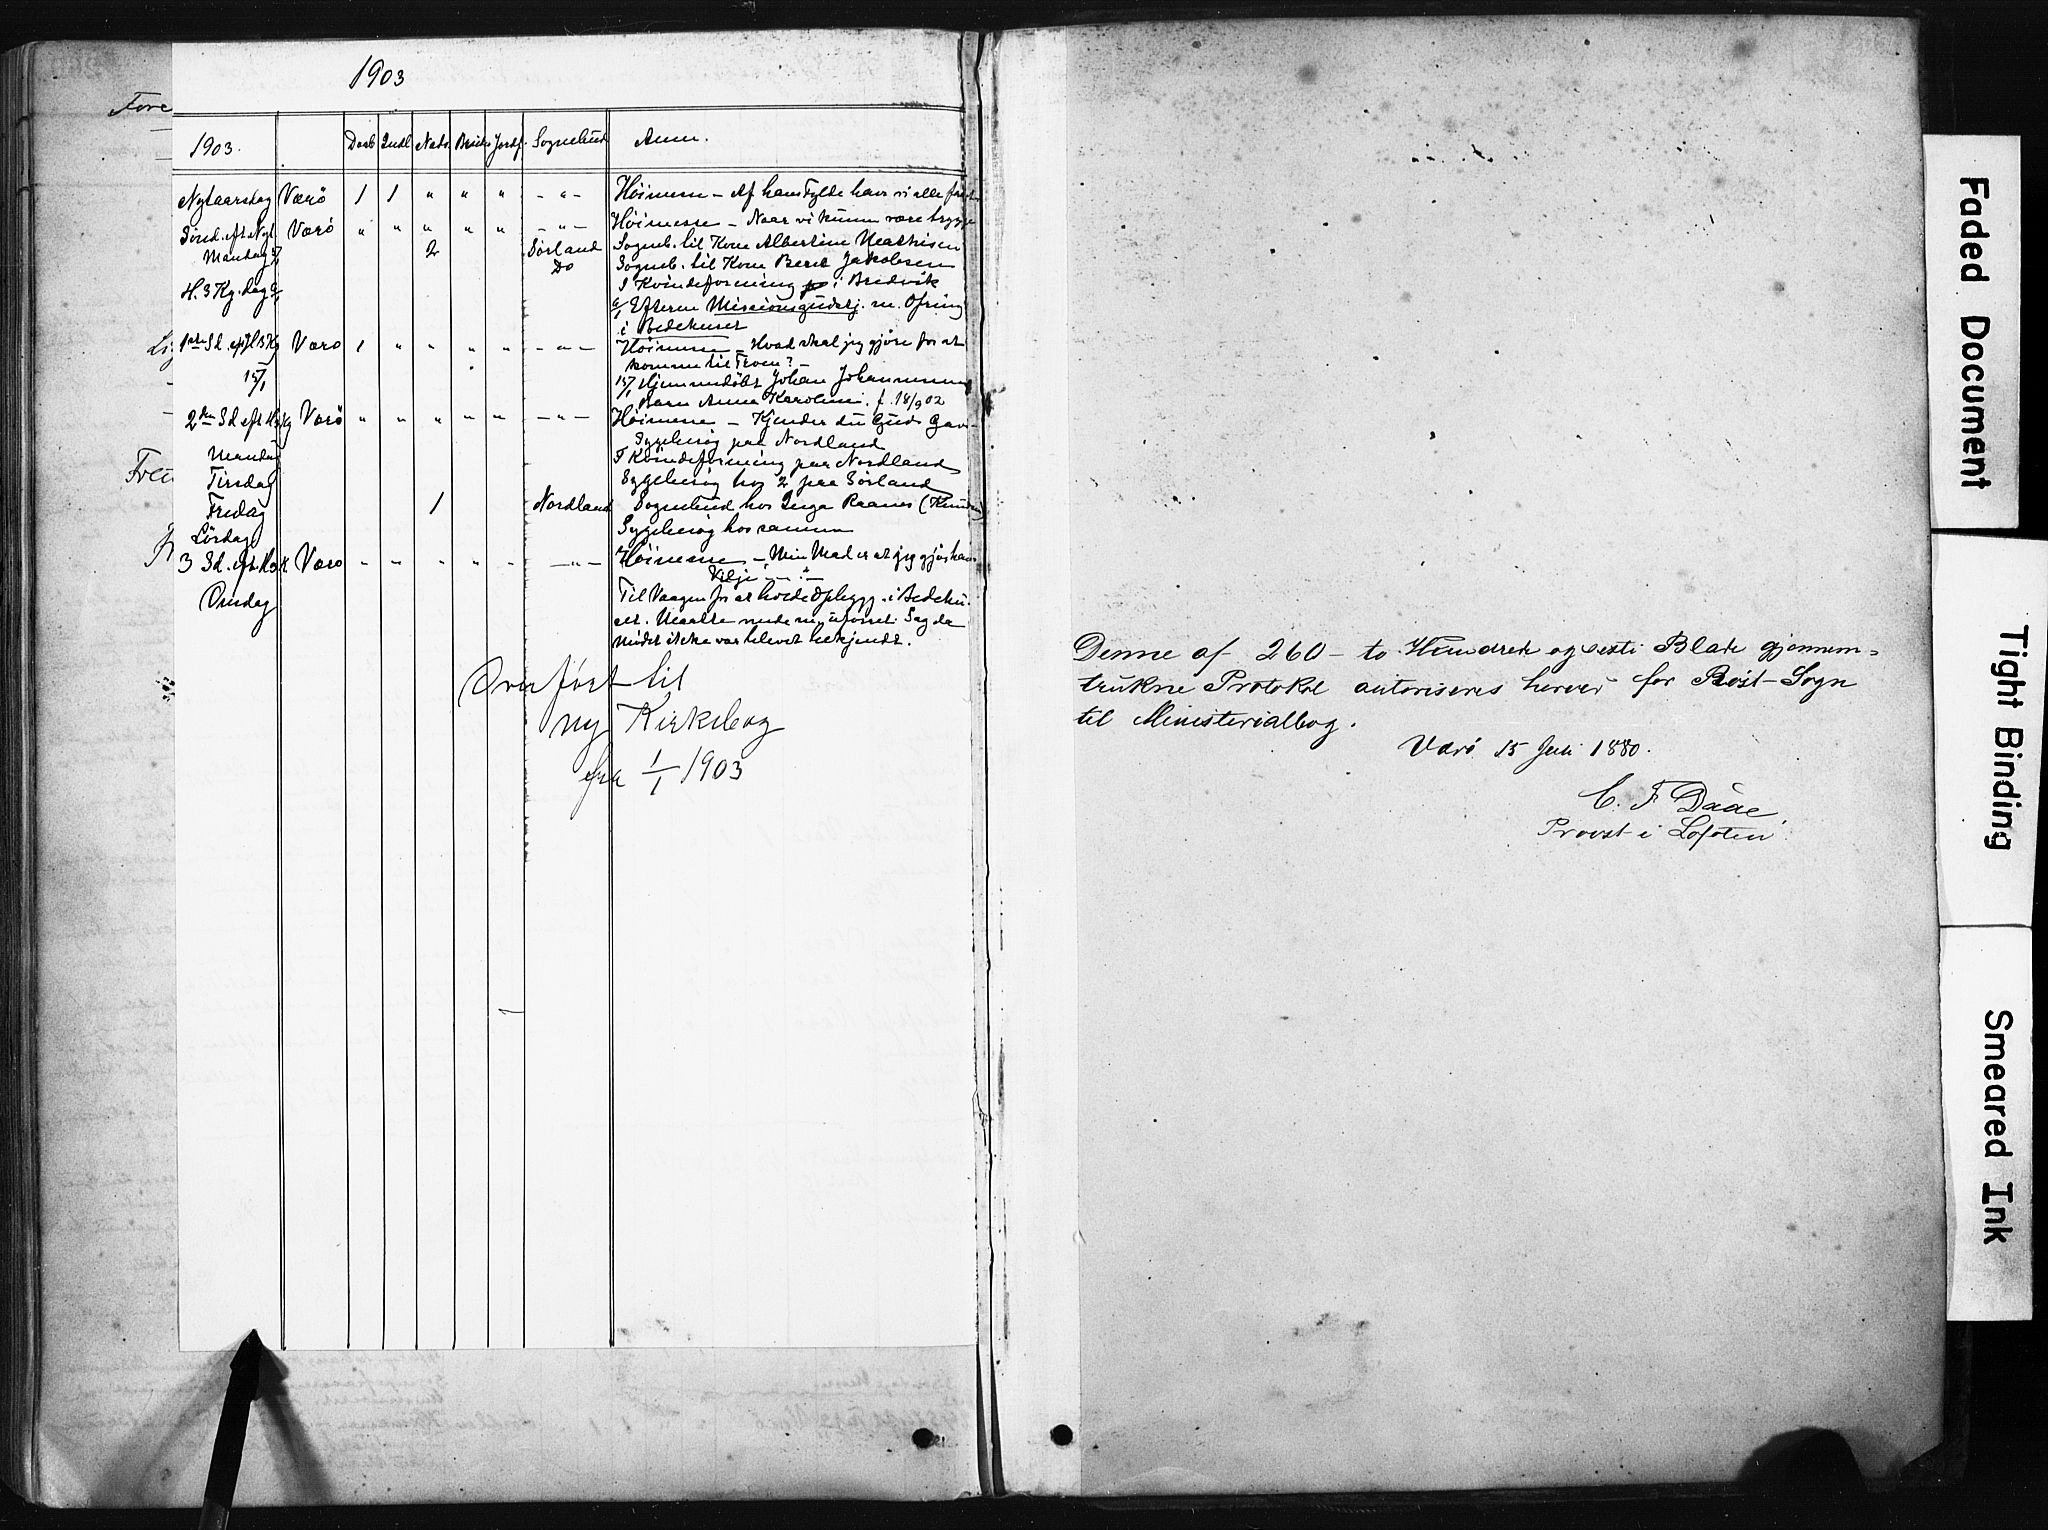 1903
Fore
1903. Daab Indl Natv. Besøk Jordf. Sognebud Anm.
Nytaarsdag Værö 1 1 " " " - " - Höimesse - Af hans Fylde have vi alle faaet
Sönd. eft. Nyt. Værö " " " " " - " - Höimesse - Naar vi kunne være trygge
Mandag 5/1 2 Sörland Sogneb. til Kone Albertine Mathisen
Do Sogneb. til Kone Beret Jakobsen
I Kvindeforening i Bredvik
H. 3 Kg. dag 6/1 6/1 Efterm Missionsgudstj. m. Ofring
i Bedehuset
1ste Sd. eft H3K Værö 1 " " " " - " - Höimesse - Hvad skal jeg gjöre for at
komme til Troen? -
15/1 15/1 Hjemmedöbt Johan Johannessens
Barn Anna Karoline. f. 18/9 02
2den Sd eft H3Kg Værö " " " " " - " - Höimesse - Kjender du Guds Gave -
Sygebesög paa Nordland
Mandag I Kvindeforening paa Nordland
Tirsdag Sygebesög hos 2 paa Sörland
Fredag 1 Nordland Sognebud hos Inga Raanes
Lördag Sygebesög hos samme
3 Sd. eft. H3K. Værö " " " " " - " - Höimesse - Min Mad er at jeg gjör hans
Vilje - " -
Onsdag Til Vaagen for at holde Opbygg. i Bedehu-
set. Maatte vende m. uforret. Sag da
Mödet ikke var blevet bekjendt.
Overfört til
ny Kirkebog
fra 1/1 1903
Denne af 260 - to Hundrede og sexti Blade gjennem=
trukne Protokol autoriseres herved for Röst-Sogn
til Ministerialbog.
Værö 15 Juli 1880.
C. F. Daae
Provst i Lofoten
Faded Document
Tight Binding
Smeared Ink